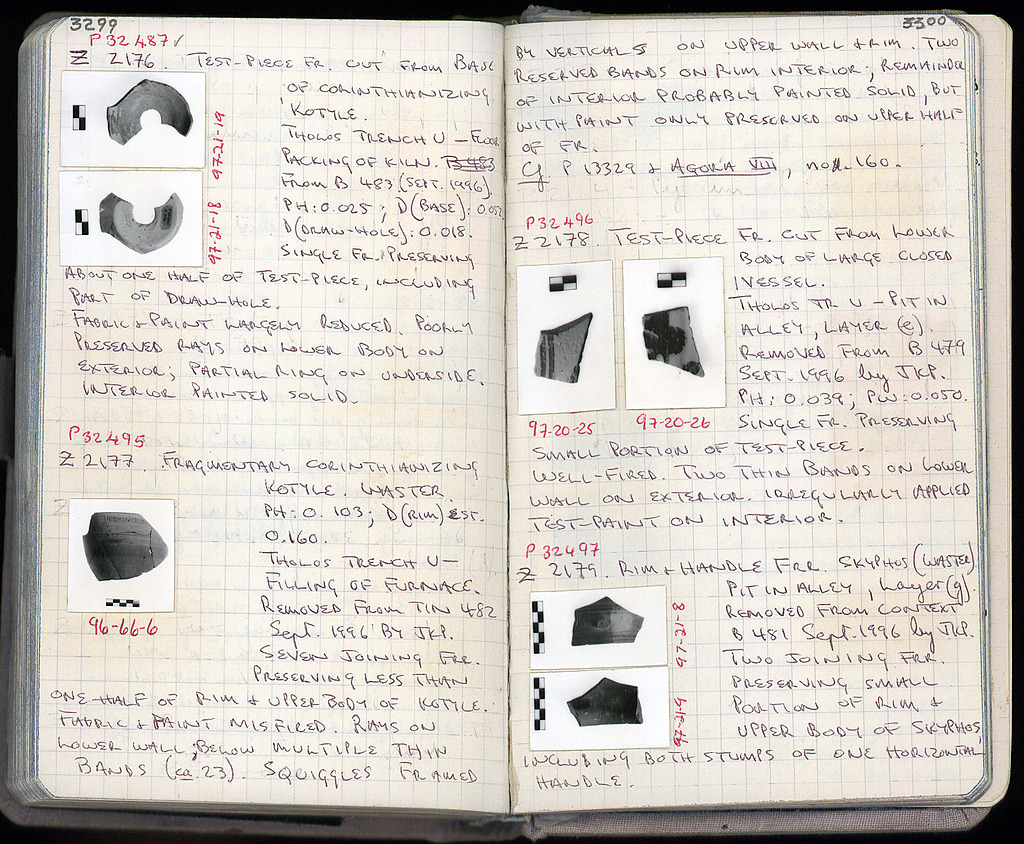 3299
P 32487 ✓
Z 2176. TEST-PIECE FR. CUT FROM BASE
OF CORINTHIANIZING
KOTYLE.
THOLOS TRENCH U – FLOOR
PACKING OF KILN. B 483
FROM B 483 (SEPT. 1996)
PH: 0.025; D(BASE): 0.052
D(DRAW-HOLE): 0.018.
SINGLE FR. PRESERVING
97-21-19
97-21-18
ABOUT ONE HALF OF TEST-PIECE, INCLUDING
PART OF DRAW-HOLE.
FABRIC & PAINT LARGELY REDUCED. POORLY
PRESERVED RAYS ON LOWER BODY ON
EXTERIOR; PARTIAL RING ON UNDERSIDE.
INTERIOR PAINTED SOLID.
P 32495
Z 2177. FRAGMENTARY CORINTHIANIZING
KOTYLE. WASTER.
PH: 0.103; D(RIM) EST.
0.160.
THOLOS TRENCH U –
FILLING OF FURNACE.
REMOVED FROM TIN 482
SEPT. 1996 BY JKP.
SEVEN JOINING FRR.
PRESERVING LESS THAN
96-66-6
ONE-HALF OF RIM & UPPER BODY OF KOTYLE.
FABRIC & PAINT MISFIRED. RAYS ON
LOWER WALL; BELOW MULTIPLE THIN
BANDS (ca. 23). SQUIGGLES FRAMED
3300
BY VERTICALS ON UPPER WALL & RIM. TWO
RESERVED BANDS ON RIM INTERIOR; REMAINDER
OF INTERIOR PROBABLY PAINTED SOLID, BUT
WITH PAINT ONLY PRESERVED ON UPPER HALF
OF FR.
Cf P 13329 & AGORA VIII, no. 160.
P 32496
Z 2178. TEST-PIECE FR. CUT FROM LOWER
BODY OF LARGE CLOSED
VESSEL.
THOLOS TR U – PIT IN
ALLEY, LAYER (e).
REMOVED FROM B 479
SEPT. 1996 by JKP.
PH: 0.039; PW: 0.050.
SINGLE FR. PRESERVING
97-20-25
97-20-26
SMALL PORTION OF TEST-PIECE.
WELL-FIRED. TWO THIN BANDS ON LOWER
WALL ON EXTERIOR. IRREGULARLY APPLIED
TEST-PAINT ON INTERIOR.
P 32497
Z 2179. RIM & HANDLE FRR. SKYPHOS (WASTER)
PIT IN ALLEY, Layer (g).
REMOVED FROM CONTEXT
B 481 Sept. 1996 by JKP.
TWO JOINING FRR.
PRESERVING SMALL
PORTION OF RIM &
UPPER BODY OF SKYPHOS,
INCLUDING BOTH STUMPS OF ONE HORIZONTAL
HANDLE.